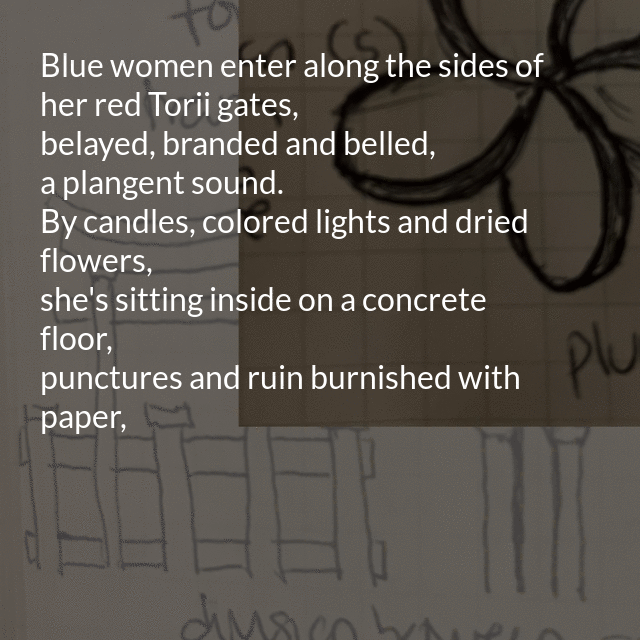 (s)
Blue women enter along the sides of
her red Torii gates,
belayed, branded and belled,
a plangent sound.
By candles, colored lights and dried
flowers,
she's sitting inside on a concrete
floor,
punctures and ruin burnished with
paper,
division between